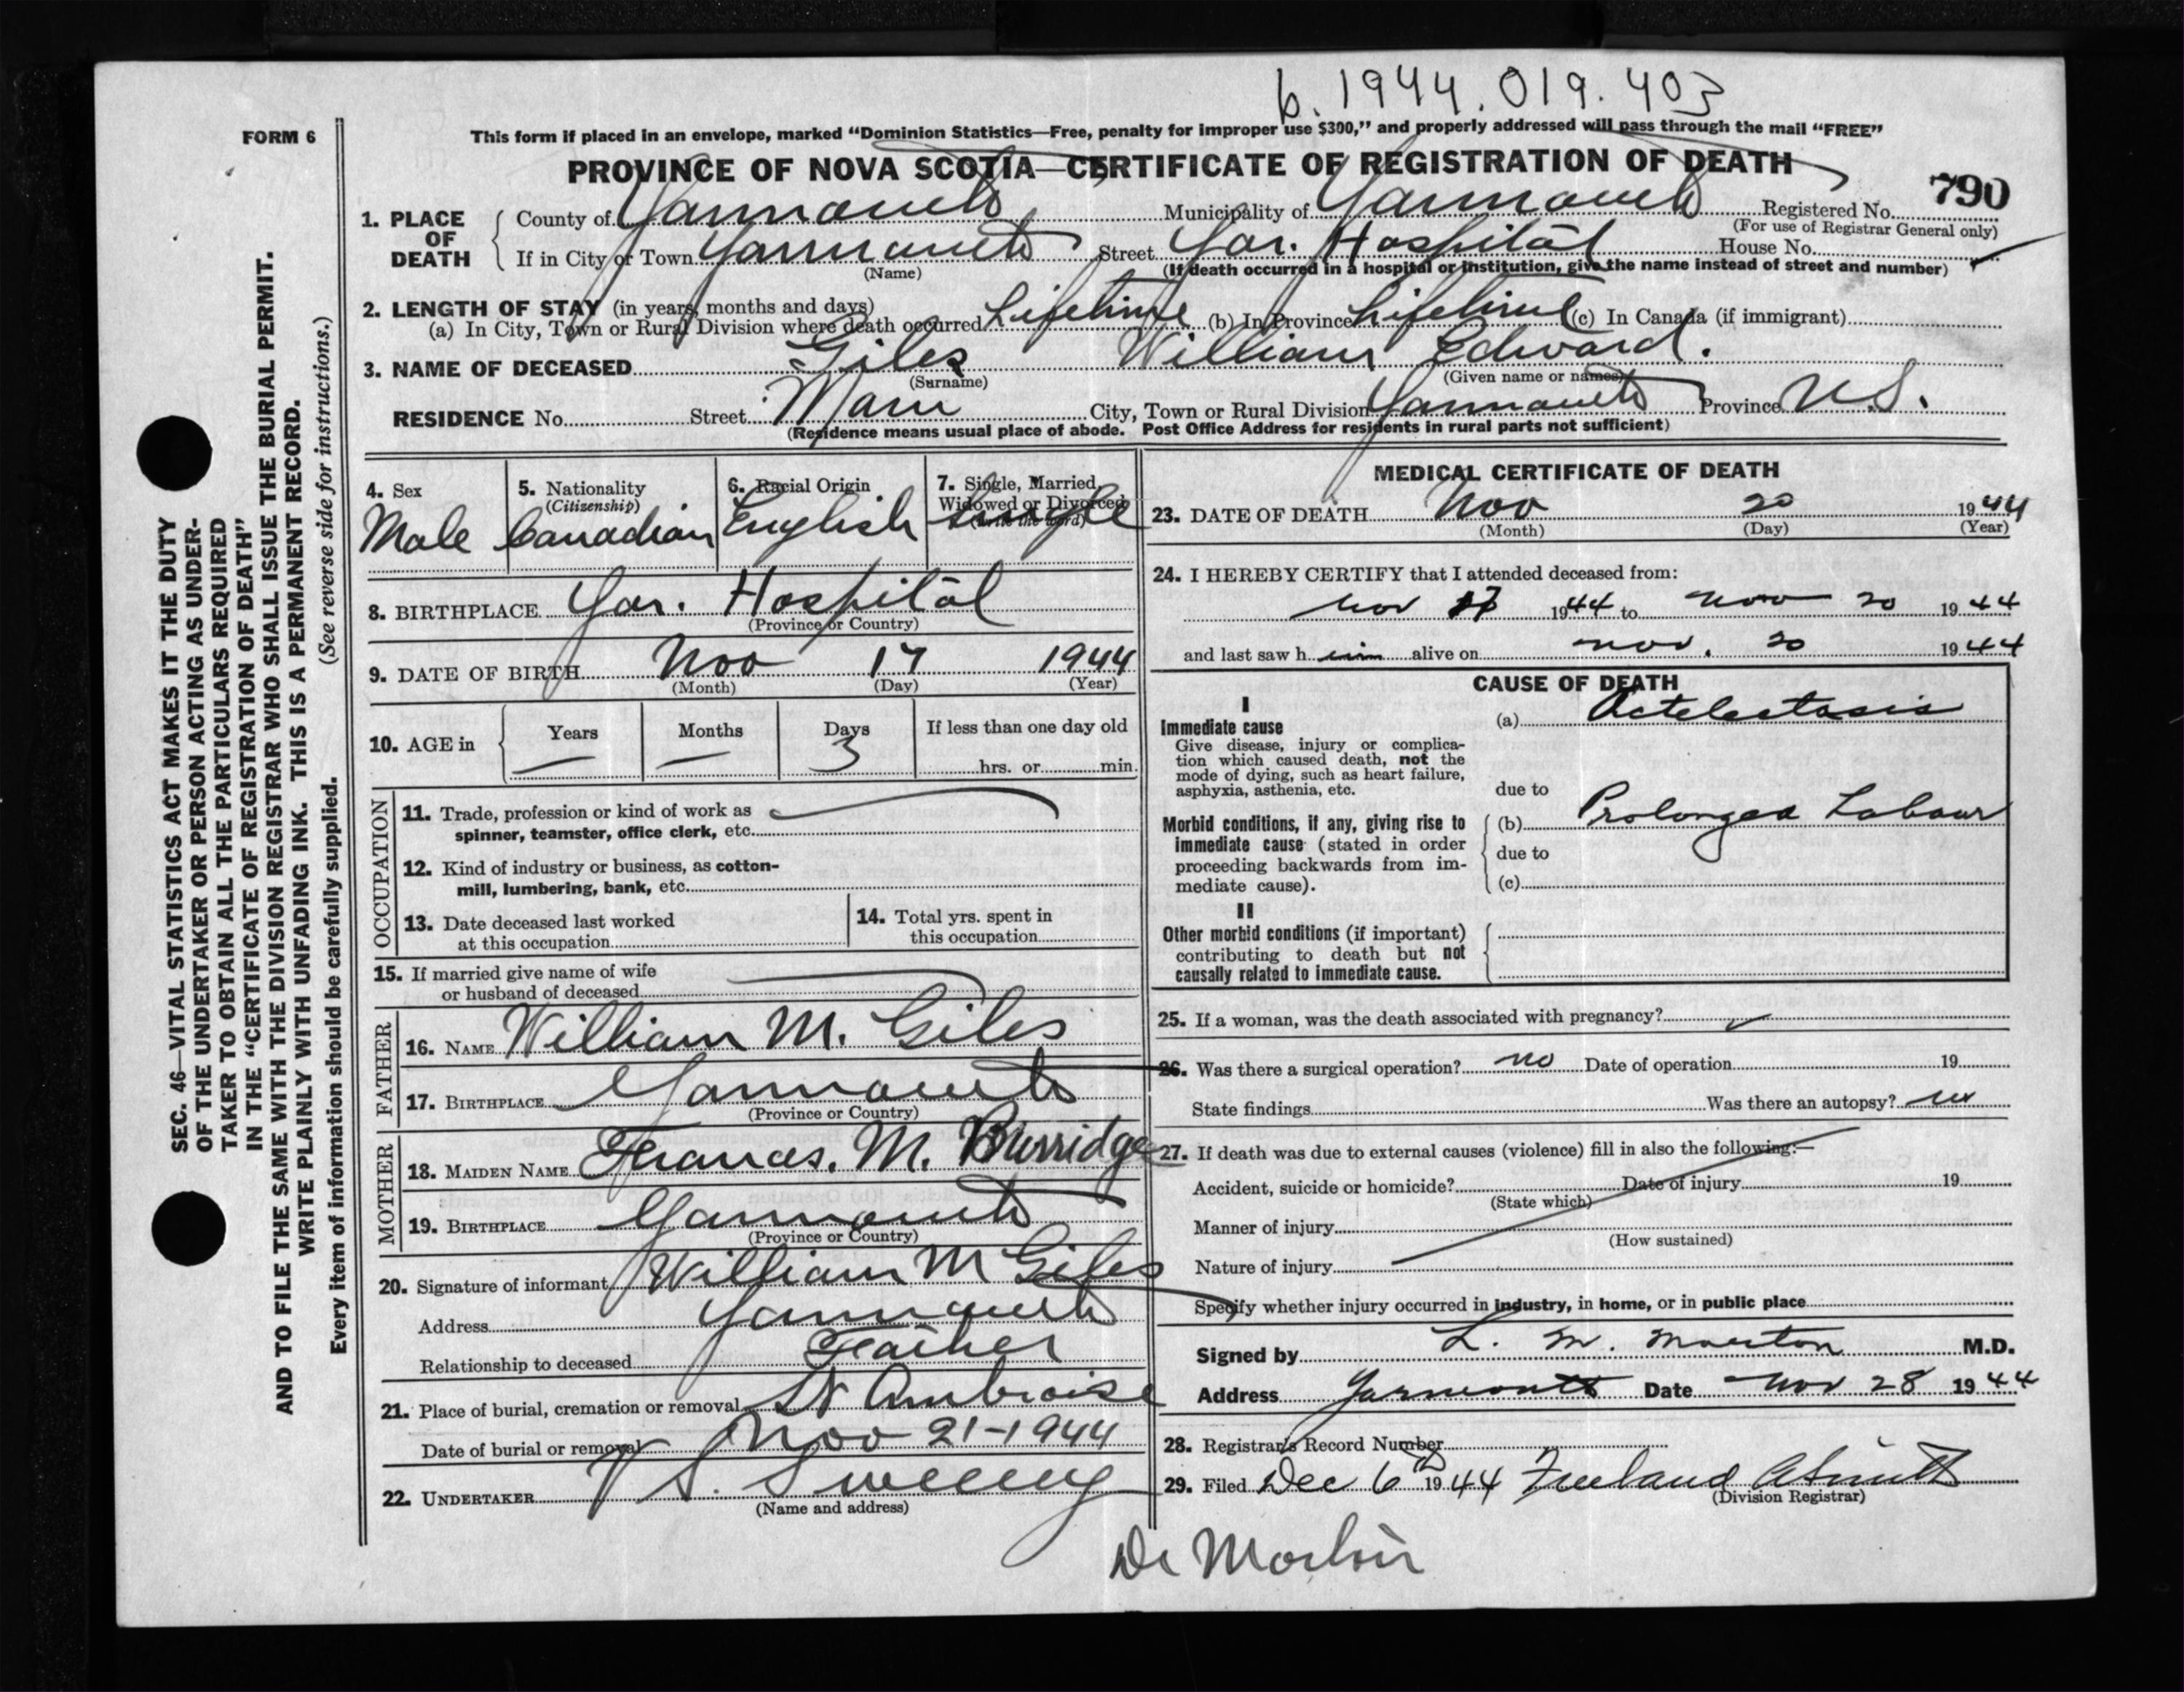 b. 1944. 019. 403
FORM 6
This form if placed in an envelope, marked “Dominion Statistics—Free, penalty for improper use $300,” and properly addressed will pass through the mail “FREE”
PROVINCE OF NOVA SCOTIA—CERTIFICATE OF REGISTRATION OF DEATH
790
1. PLACE OF DEATH
County of Yarmouth Municipality of Yarmouth Registered No.
(For use of Registrar General only)
If in City or Town Yarmouth Street Yar. Hospital House No.
(Name)
(If death occurred in a hospital or institution, give the name instead of street and number)
2. LENGTH OF STAY (in years, months and days)
(a) In City, Town or Rural Division where death occurred Lifetime (b) In Province Lifetime (c) In Canada (if immigrant)
3. NAME OF DECEASED Giles William Edward.
(Surname) (Given name or names)
RESIDENCE No. Street Main City, Town or Rural Division Yarmouth Province N.S.
(Residence means usual place of abode. Post Office Address for residents in rural parts not sufficient)
4. Sex
Male
5. Nationality
(Citizenship)
Canadian
6. Racial Origin
English
7. Single, Married, Widowed or Divorced
(Write the word)
Single
8. BIRTHPLACE Yar. Hospital
(Province or Country)
9. DATE OF BIRTH Nov 17 1944
(Month) (Day) (Year)
10. AGE in
Years Months Days If less than one day old
— — 3 hrs. or min.
OCCUPATION
11. Trade, profession or kind of work as
spinner, teamster, office clerk, etc.
12. Kind of industry or business, as cotton-
mill, lumbering, bank, etc.
13. Date deceased last worked
at this occupation
14. Total yrs. spent in
this occupation
15. If married give name of wife
or husband of deceased
FATHER
16. NAME William M. Giles
17. BIRTHPLACE Yarmouth
(Province or Country)
MOTHER
18. MAIDEN NAME Frances. M. Burridge
19. BIRTHPLACE Yarmouth
(Province or Country)
20. Signature of informant William M Giles
Address Yarmouth
Relationship to deceased Father
21. Place of burial, cremation or removal St Ambroise
Date of burial or removal Nov 21-1944
22. UNDERTAKER V S. Sweeny
(Name and address)
MEDICAL CERTIFICATE OF DEATH
23. DATE OF DEATH Nov 20 1944
(Month) (Day) (Year)
24. I HEREBY CERTIFY that I attended deceased from:
Nov 17 1944 to Nov 20 1944
and last saw h im alive on Nov. 20 1944
CAUSE OF DEATH
I
Immediate cause
Give disease, injury or complica-
tion which caused death, not the
mode of dying, such as heart failure,
asphyxia, asthenia, etc.
(a) Actelectasis
due to
Morbid conditions, if any, giving rise to
immediate cause (stated in order
proceeding backwards from im-
mediate cause).
(b) Prolonged Labour
due to
(c)
II
Other morbid conditions (if important)
contributing to death but not
causally related to immediate cause.
25. If a woman, was the death associated with pregnancy?
26. Was there a surgical operation? no Date of operation 19
State findings Was there an autopsy? no
27. If death was due to external causes (violence) fill in also the following:—
Accident, suicide or homicide? Date of injury 19
(State which)
Manner of injury
(How sustained)
Nature of injury
Specify whether injury occurred in industry, in home, or in public place
Signed by L. M. Morton M.D.
Address Yarmouth Date Nov 28 1944
28. Registrar's Record Number
29. Filed Dec 6th 1944 Freeland A Smith
(Division Registrar)
Dr Morton
SEC. 46—VITAL STATISTICS ACT MAKES IT THE DUTY
OF THE UNDERTAKER OR PERSON ACTING AS UNDER-
TAKER TO OBTAIN ALL THE PARTICULARS REQUIRED
IN THE “CERTIFICATE OF REGISTRATION OF DEATH”
AND TO FILE THE SAME WITH THE DIVISION REGISTRAR WHO SHALL ISSUE THE BURIAL PERMIT.
WRITE PLAINLY WITH UNFADING INK. THIS IS A PERMANENT RECORD.
Every item of information should be carefully supplied. (See reverse side for instructions.)